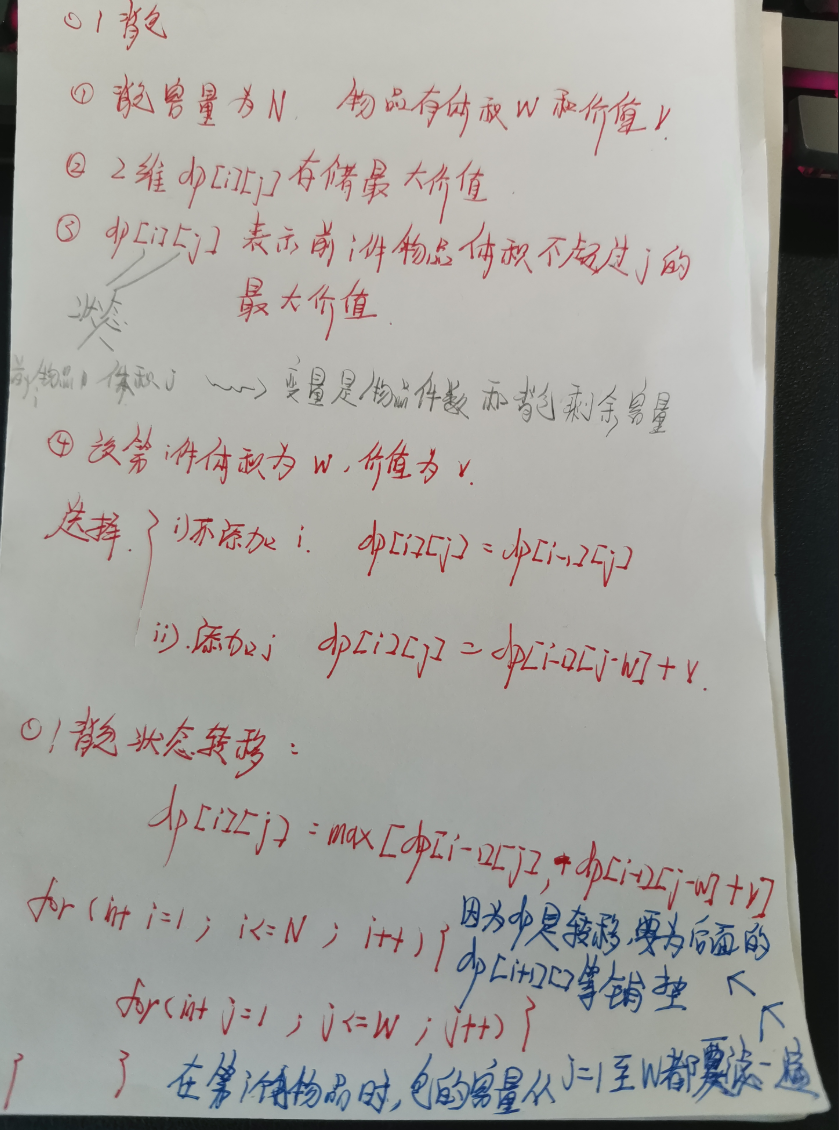 01背包
① 背包容量为N. 物品有体积W和价值V.
② 2维dp[i][j]存储最大价值
③ dp[i][j] 表示前i件物品体积不超过j的
最大价值.
状态
前i物品 体积j ~~→ 变量是物品件数和背包剩余容量
④ 设第i件体积为w,价值为v.
选择. { i)不添加i. dp[i][j] = dp[i-1][j]
ii).添加j dp[i][j] = dp[i-1][j-w]+v.
01背包状态转移:
dp[i][j] = max[dp[i-1][j], dp[i-1][j-w]+v]
for(int i=1; i<=N; i++){ 因为dp是转移,要为后面的
dp[i+1][]等铺垫
for(int j=1; j<=W; j++){
} } 在第i件物品时,包的容量从j=1至W都要滤一遍